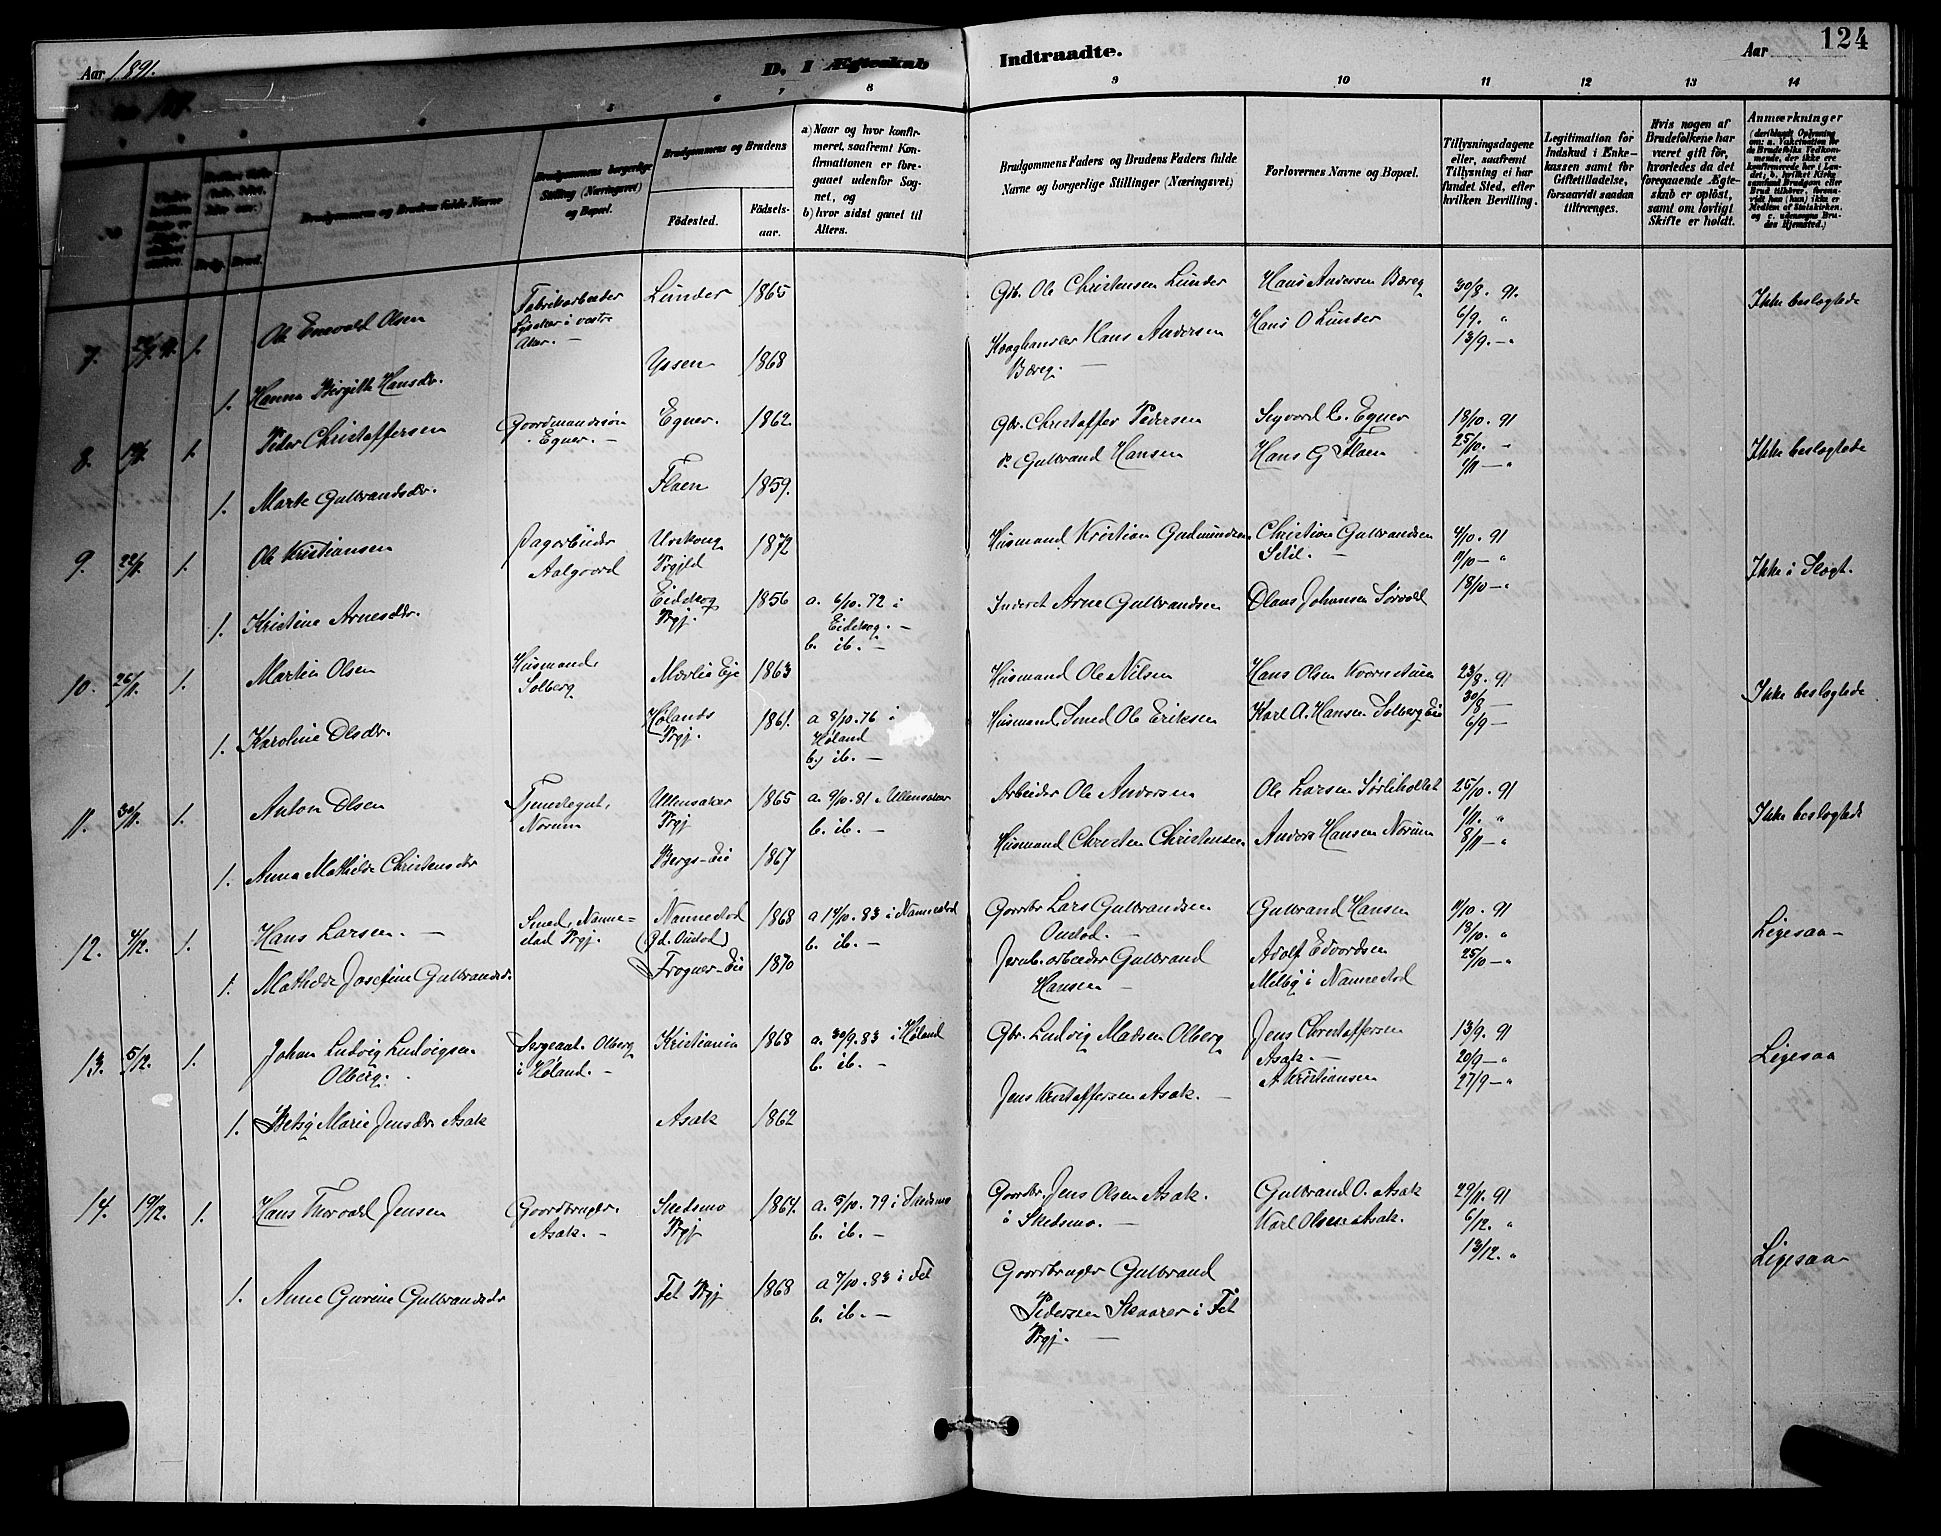 Aar 1891.
D. I Ægteskab
Indtraadte.
Aar
124
5 6 7 8 9 10 11 12 13 14
Brudgommens og Brudens fulde Navne
Brudgommens borgerlige Stilling (Næringsvei) og Bopæl.
Brudgommens og Brudens
Fødested.
Fødsels-aar.
a) Naar og hvor konfirmeret, saafremt Konfirmationen er foregaaet udenfor Sognet, og
b) hvor sidst gaaet til Alters.
Brudgommens Faders og Brudens Faders fulde Navne og borgerlige Stillinger (Næringsvei)
Forlovernes Navne og Bopæl.
Tillysningsdagene eller, saafremt Tillysning ei har fundet Sted, efter hvilken Bevilling.
Legitimation for Indskud i Enkekassen samt for Giftetilladelse, forsaavidt saadan tiltrænges.
Hvis nogen af Brudefolkene har været gift før, hvorledes da det foregaaende Ægteskab er opløst, samt om lovligt Skifte er holdt.
Anmærkninger
7. 1. Ole Enevold Olsen Fabrikarbeider Lysaker i vestre Aker. — Lunder 1865 Gbr. Ole Christensen Lunder Hans Andersen Bæreg 30/8. 91. Ikke beslogtede
1. Hanna Birgitte Hansdr. Yssen 1868 Hans Andersen Bæreg. Hans O Lunder 6/9. " 13/9. — "
8. 1. Peder Christoffersen Goordmandssøn Egner. — Egner. 1862 Gbr. Christoffer Pedersen Sigvard C. Egner 18/10. 91 Ikke beslogtede
1. Marte Gulbrandsdr. Flaen 1859. do Gulbrand Hansen Hans G Flaen 25/10. — " 1/11 — "
9. 22/11. 1. Ole Kristiansen Aalgaard Urskoug Prgjld 1872 Husmand Kristian Gudmundsen Christian Gulbrandsen 4/10. 91 11/10 — " Ikke i Slægt.
1. Kristine Arnesdr. Eidskog Prgj. 1856 a. 6/10. 72 i Eidskog. — b. ib. — Inderst Arne Gulbrandsen Olaus Johansen 18/10 — "
10. 26/11. 1. Martin Olsen Husmand. Solberg Mørlie Eje 1863 Husmand Ole Nilsen Hans Olsen 23/8. 91 Ikke beslogtede
1. Karoline Olsdr. Hølands Prgj. 1861. a 8/10. 76 i Høland b) ib. — Husmand Smed Ole Eriksen Karl A. Hansen Solberg Eie 30/8 — 6/9 —
11. 30/11. 1. Anton Olsen Tjenestegut, Norum Ullensaker Prgj 1865 a. 9/10. 81 i Ullensaker b. ib. — Arbeider Ole Andersen Ole Larsen Sørliholtet 25/10. 91 Ikke beslogtede
1. Anna Mathilde Christensdr Bergs-Eie 1867 Husmand Christen Christensen Anders Hansen Norum 1/11. " 8/11 — "
12. 4/12. 1. Hans Larsen. — Smed, Nannestad Prgj. Nannestad 1868 a 14/10. 83 i Nannestad b. ib. — Goordbr Lars Gulbrandsen Gulbrand Hansen 11/10. 91 18/10. " Ligesaa —
1. Mathilde Josefine Gulbrandsdr. Frogner-Eie 1870 Jernb. arbeider Gulbrand Hansen — Adolf Edvardsen Melby i Nannestad 25/10 — "
13. 5/12. 1. Johan Ludvig Ludvigsen Olberg. Sergeant. Olberg i Høland. — Kristiania 1868 a. 30/9. 83 i Høland b. ib. — Gbr. Ludvig Madsen Olberg Jens Christoffersen Asak. — 13/9. 91 20/9 — " Ligesaa
1. Betsy Marie Jensdr Asak Asak 1862 Jens Kristoffersen Asak. — A Kristiansen 27/9 — "
14. 19/12. 1. Hans Thorvald Jensen Goordbruger. Asak. — Skedsmo Prgj 1864. a. 5/10. 79 i Skedsmo b. ib. — Goordbr. Jens Olsen Asak. i Skedsmo. — Gulbrand O. Asak Karl Olsen Asak. 29/11. 91 6/12. " 13/12. " Ligesaa
1. Anne Gurine Gulbrandsdr Fet Prgj 1868 a 7/10. 83 i Fet b. ib. — Goordbruger Gulbrand Pedersen Skaarer i Fet Prgj. —